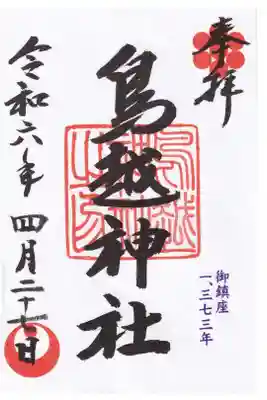 奉拝
御鎮座
一、三七三年
鳥越神社
令和六年四月二十七日